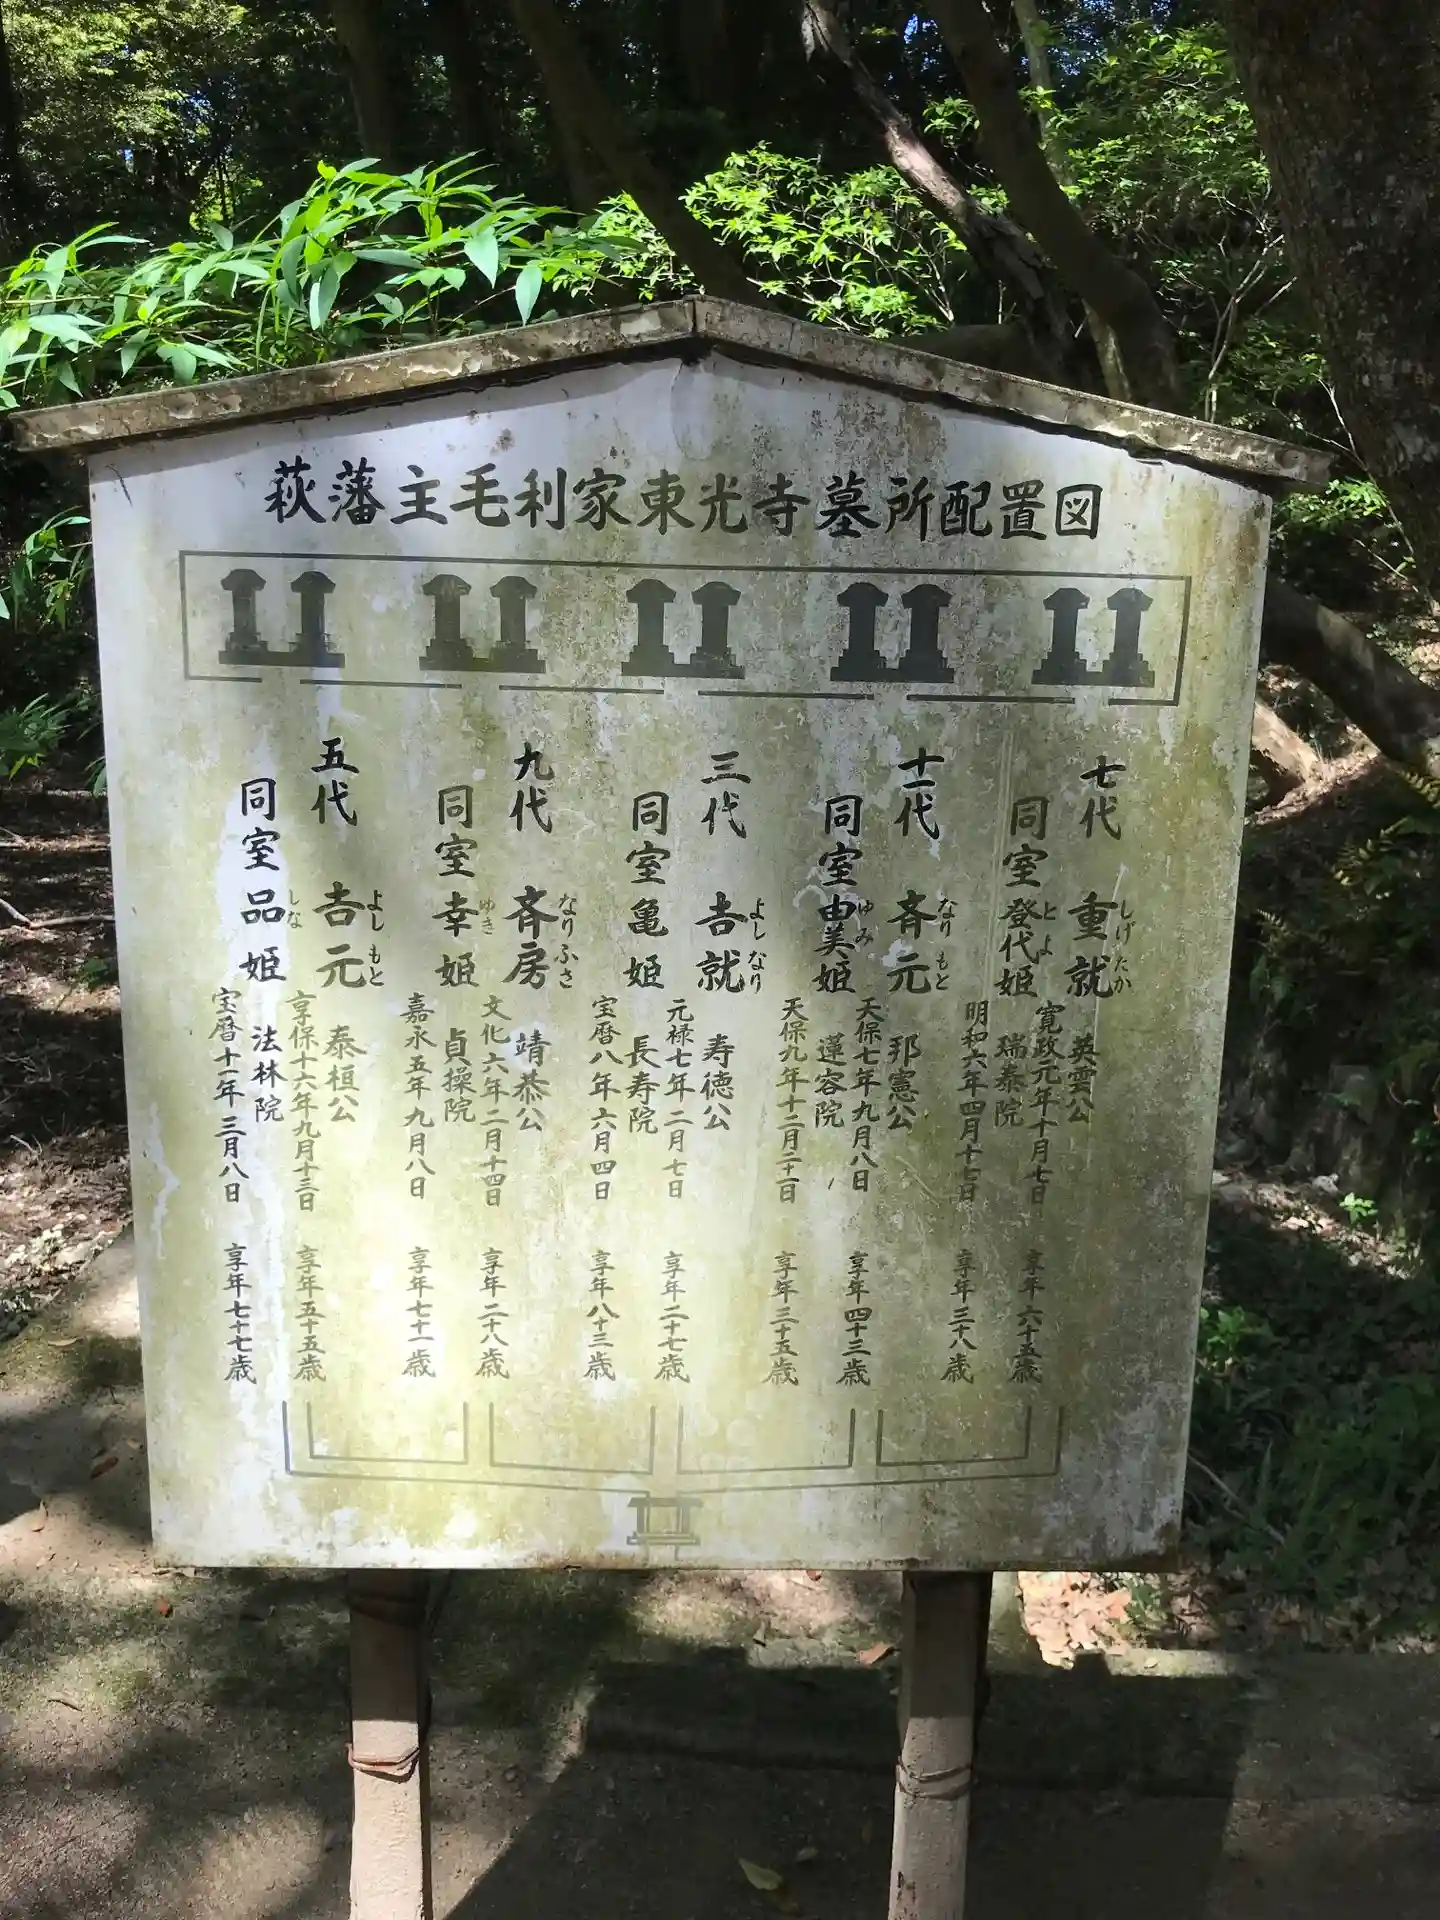 萩藩主毛利家東光寺墓所配置図
七代 重就
しげ たか
英雲公
寛政元年十月七日 享年六十五歳
同室登代姫
とよ
瑞泰院
明和六年四月十七日 享年三十八歳
十一代 斉元
なり もと
邦憲公
天保七年九月八日 享年四十三歳
同室由美姫
ゆみ
蓮容院
天保九年十二月二十一日 享年三十五歳
三代 吉就
よし なり
寿徳公
元禄七年二月七日 享年二十七歳
同室亀姫
長寿院
宝暦八年六月四日 享年八十三歳
九代 斉房
なり ふさ
靖恭公
文化六年二月十四日 享年二十八歳
同室幸姫
ゆき
貞操院
嘉永五年九月八日 享年七十一歳
五代 吉元
よし もと
泰桓公
享保十六年九月十三日 享年五十五歳
同室品姫
しな
法林院
宝暦十一年三月八日 享年七十七歳